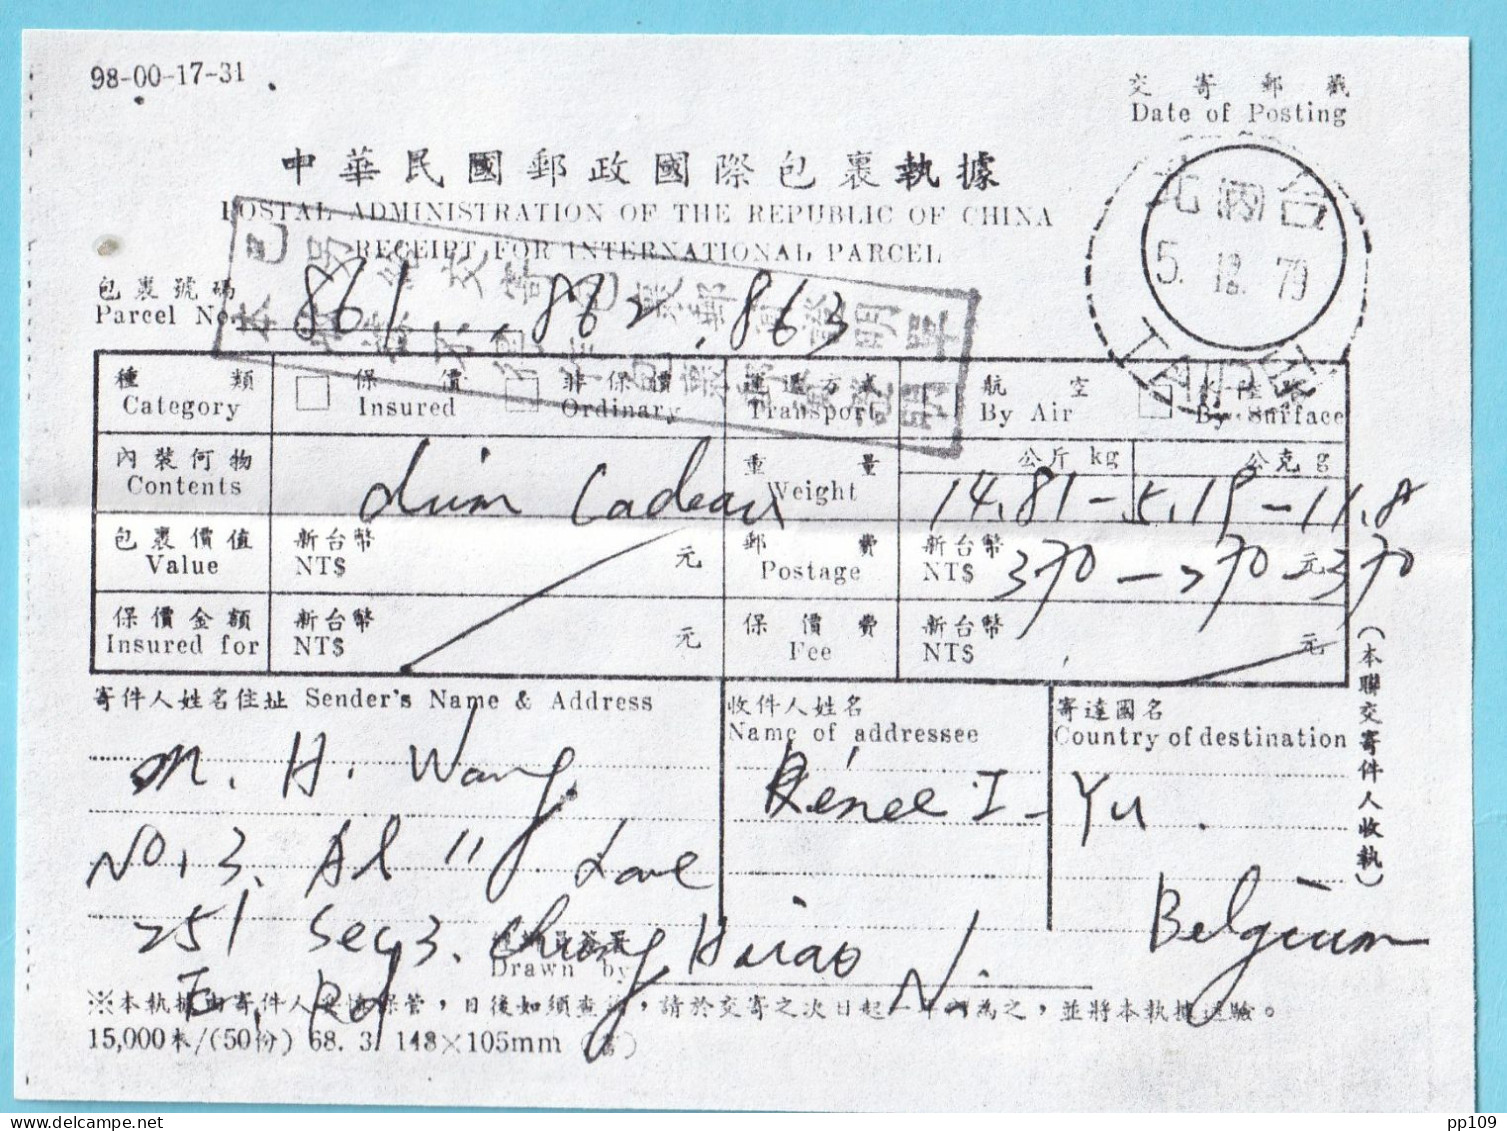 98-00-17-31
交寄郵戳
Date of Posting
中華民國郵政國際包裹執據
POSTAL ADMINISTRATION OF THE REPUBLIC OF CHINA
RECEIPT FOR INTERNATIONAL PARCEL
台北
5. 12. 79
TAIPEI
包裹號碼
Parcel No. 861, 862, 863
種類 Category
保價 Insured
非保價 Ordinary
運遞方式 Transport
航空 By Air
水陸路 By Surface
內裝何物 Contents
Cadeau
重量 Weight
公斤 kg
公克 g
14.81 - 5.19 - 11.8
包裹價值 Value
新台幣 NT$ 元
郵費 Postage
新台幣 NT$ 370 - 270 - 370 元
保價金額 Insured for
新台幣 NT$ 元
保價費 Fee
新台幣 NT$ 元
寄件人姓名住址 Sender's Name & Address
M. H. Wang
No. 3. Al 11 Lane
251 Sec 3. Chung Hsiao
E. Rd
收件人姓名
Name of addressee
Renée I-Yu
寄達國名
Country of destination
Belgium
Drawn by
(本聯交寄件人收執)
※本執據由寄件人妥慎保管，日後如須查詢，請於交寄之次日起一年內為之，並將本執據送驗。
15,000本/(50份) 68. 3. 148×105mm
pp109